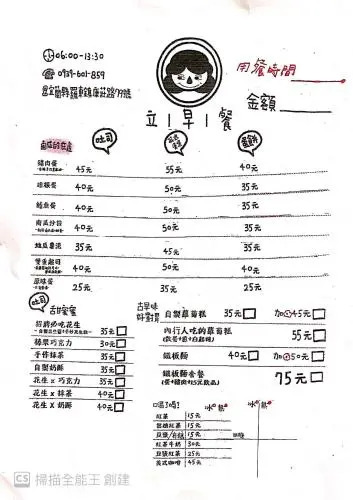 06:00-13:30
0939-601-859
宜蘭縣羅東鎮康莊路79號
用餐時間
金額
立早餐
吐司
蛋餅
豬肉蛋 45元 55元 40元
40元 50元 35元
鮪魚蛋 40元 50元 35元
南瓜沙拉 40元 50元 35元
地瓜薯泥 35元 45元 35元
雙重起司 40元 50元 40元
原味蛋 25元 35元 25元
吐司 甜蜜蜜
招牌必吃花生 35元
榛果巧克力 30元
手作抹茶 35元
自製奶酥 35元
花生x巧克力 35元
花生x奶酥 40元
古早味好對胃
自製蘿蔔糕 35元 加 45元
內行人吃的蘿蔔糕 55元
鐵板麵 40元 加 50元
鐵板麵套餐 75元
(蛋+豬肉+15元飲品)
渴了嗎? 冰 熱 冰 熱
紅茶 15元
紅茶 15元
豆漿 15元
紅茶牛奶 30元
豆漿紅茶 25元
美式咖啡 45元
CS 掃描全能王 創建